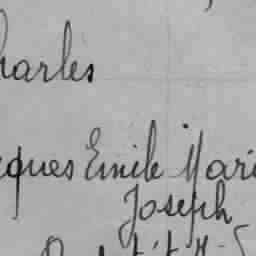 harles
cques Emile Mari
Joseph